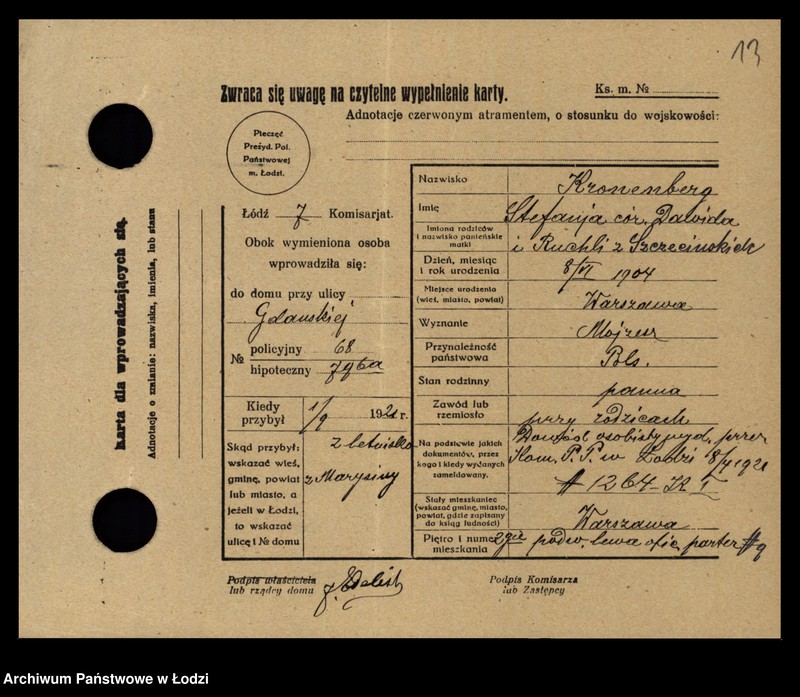 13
Zwraca się uwagę na czytelne wypełnienie karty.
Ks. m. №
Adnotacje czerwonym atramentem, o stosunku do wojskowości:
Pieczęć
Prezyd. Pol.
Państwowej
m. Łodzi.
Karta dla wprowadzających się.
Adnotacje o zmianie: nazwiska, imienia, lub stanu
Łódź 7 Komisarjat.
Obok wymieniona osoba
wprowadziła się:
do domu przy ulicy
Gdańskiej
№ policyjny 68
hipoteczny 796a
Kiedy przybył 1/9 1921 r.
Skąd przybył: z letniska
wskazać wieś,
gminę, powiat z Marysiny
lub miasto, a
jeżeli w Łodzi,
to wskazać
ulicę i № domu
Nazwisko Kronenberg
Imię Stefanja cór. Dawida
Imiona rodziców
i nazwisko panieńskie
matki i Ruchli z Szczecińskich
Dzień, miesiąc
i rok urodzenia 8/VI 1904
Miejsce urodzenia
(wieś, miasto, powiat) Warszawa
Wyznanie Mojżesz
Przynależność
państwowa Pols.
Stan rodzinny panna
Zawód lub
rzemiosło przy rodzicach
Na podstawie jakich
dokumentów, przez
kogo i kiedy wydanych
zameldowany.
Dowód osobisty wyd. przez
Kom. P.P. w Łodzi 1921
# 1264
Stały mieszkaniec
(wskazać gminę, miasto,
powiat, gdzie zapisany
do ksiąg ludności) Warszawa
Piętro i numer
mieszkania 2gie podw. lewa ofic. parter # 9
Podpis właściciela
lub rządcy domu
Podpis Komisarza
lub Zastępcy
Archiwum Państwowe w Łodzi